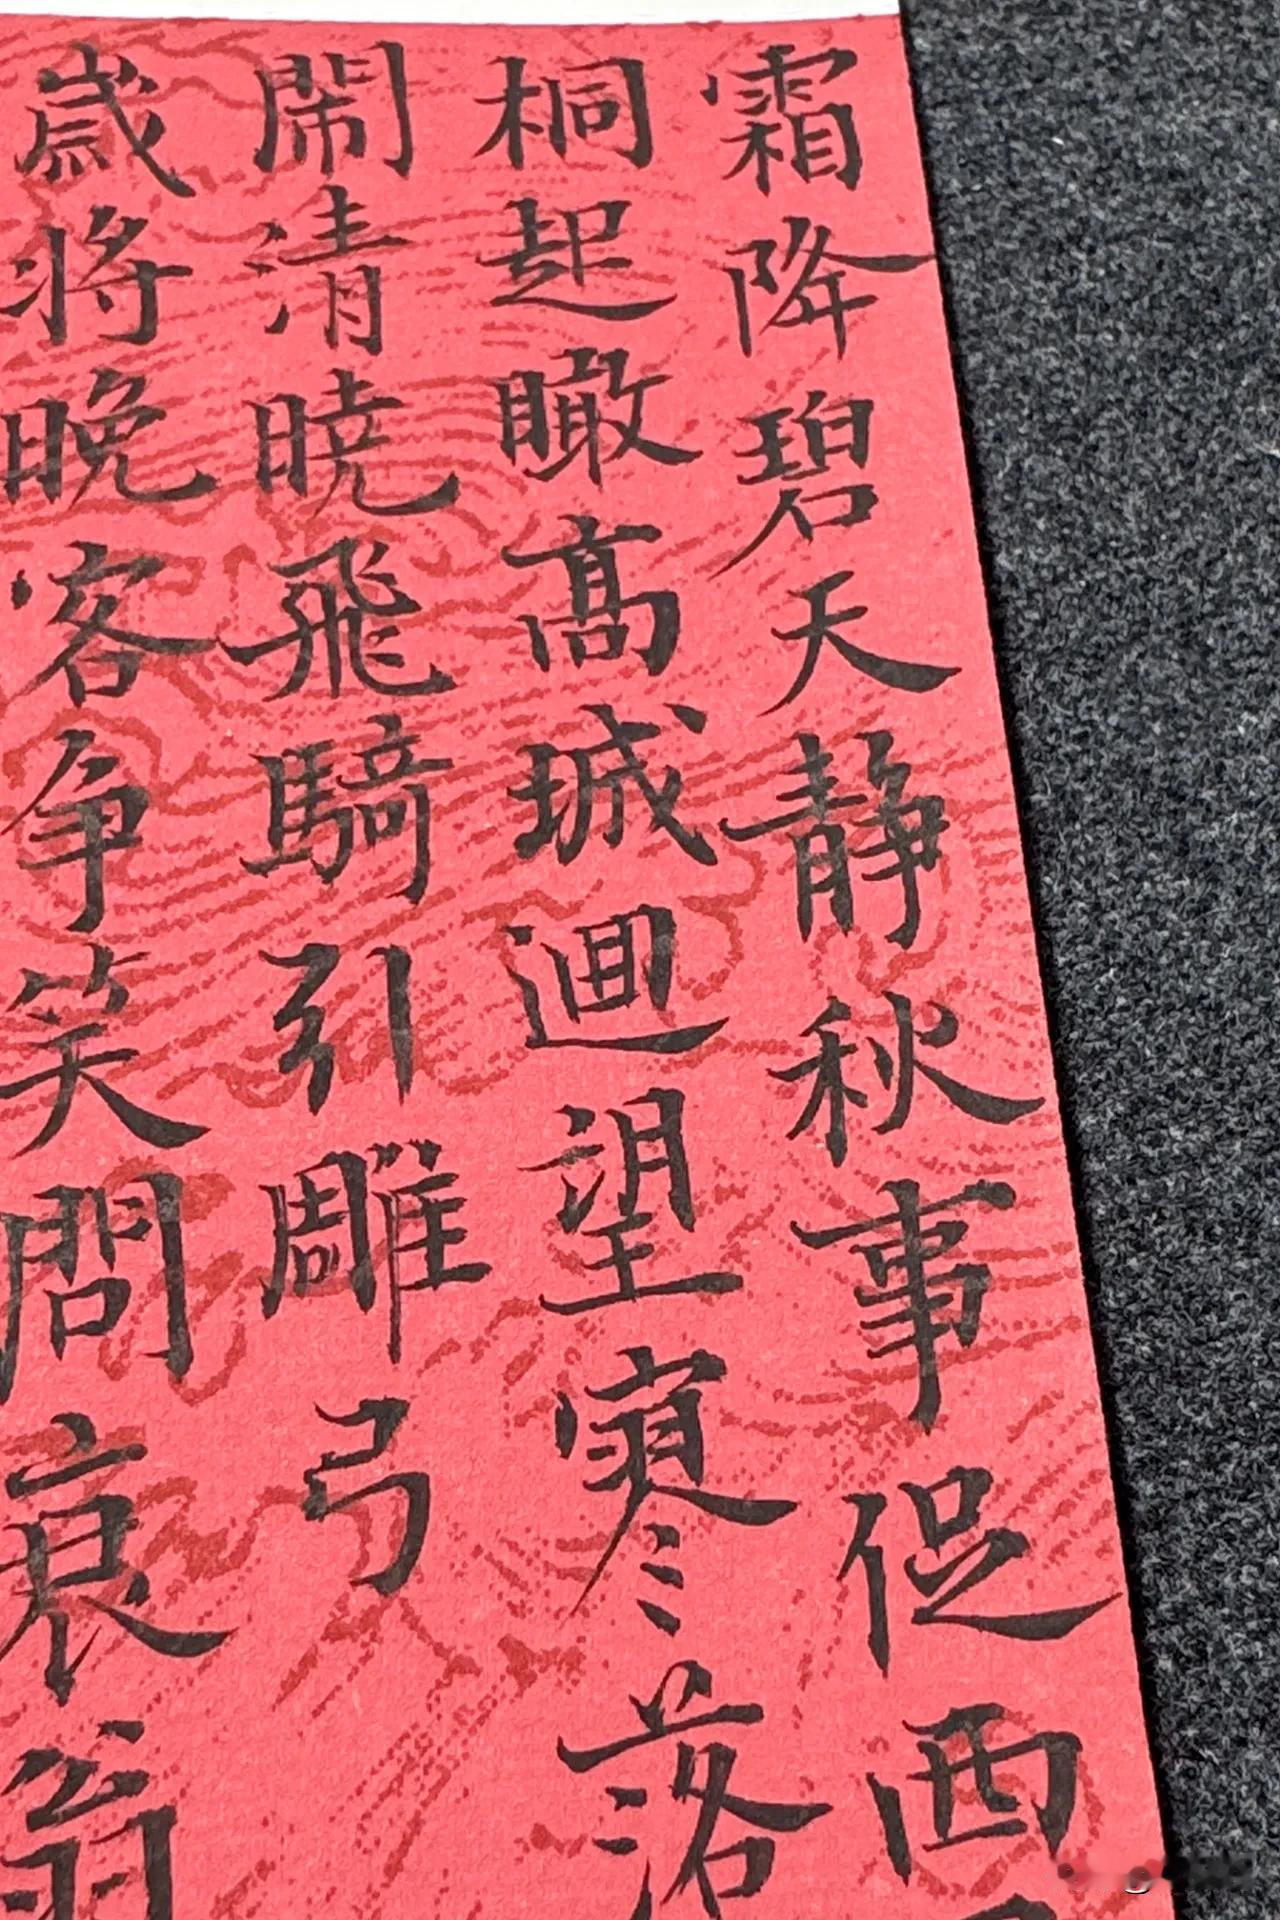 霜降碧天静秋事促西
桐起瞰高城迴望寒落
鬧清曉飛騎引雕弓
歲將晚客争笑問衰翁